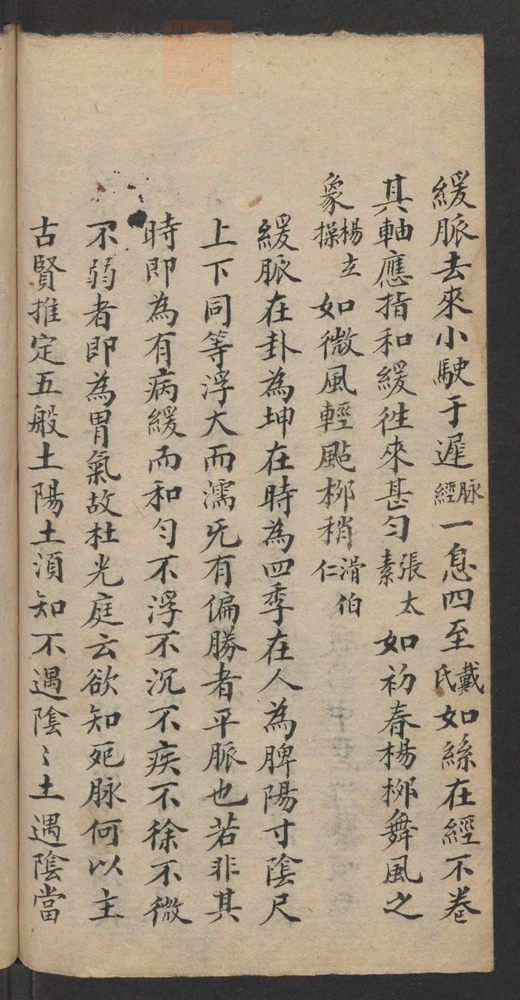 緩脈去來小駛于遲脉經一息四至戴氏如絲在經不卷
其軸應指和緩徃來甚匀張太素如初春楊栁舞風之
象楊立操如微風輕颭栁稍滑伯仁
緩脈在卦為坤在時為四季在人為脾陽寸陰尺
上下同等浮大而濡旡有偏勝者平脈也若非其
時即為有病緩而和匀不浮不沉不疾不徐不微
不弱者即為胃氣故杜光庭云欲知死脉何以主
古賢推定五般土陽土須知不遇陰〻土遇陰當